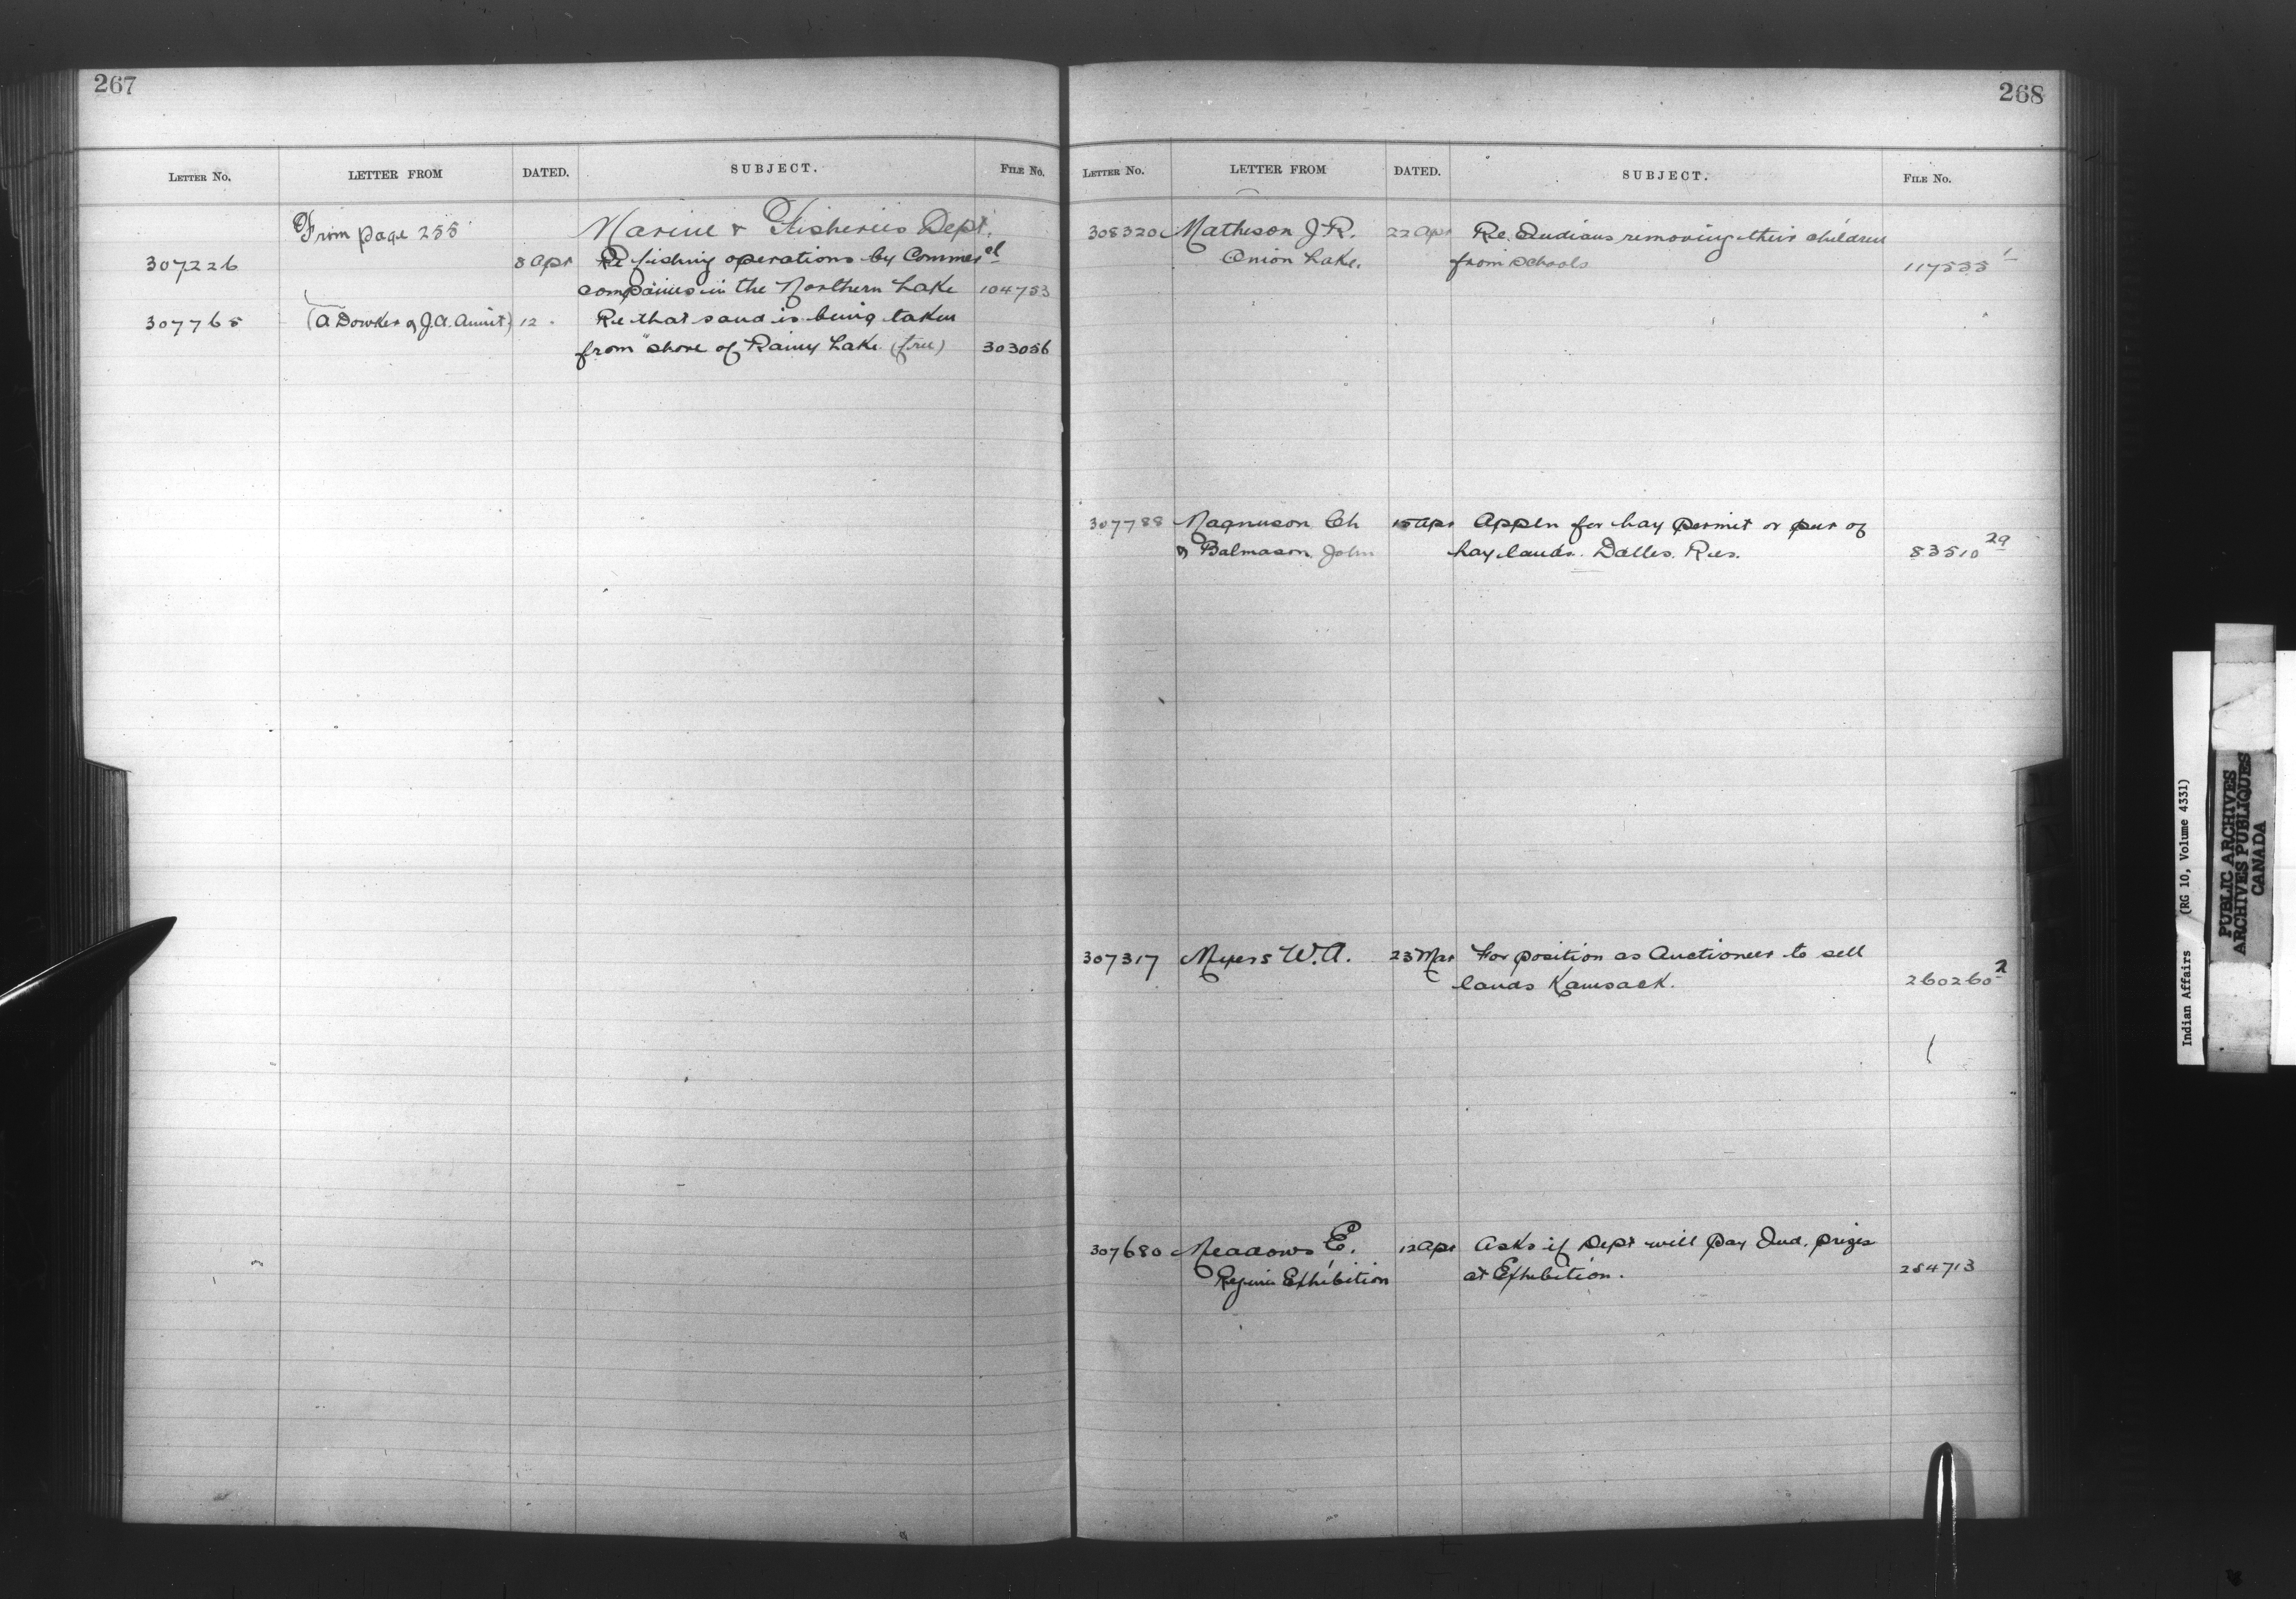 267
LETTER NO. LETTER FROM DATED. SUBJECT. FILE NO.
From page 255 Marine & Fisheries Dept.
307226 8 Apr Re fishing operations by Commercl
companies in the Northern Lake 104753
307765 (A Dowker of J.A. ) 12 " Re that sand is being taken
from shore of Rainy Lake. (free) 303056
268
LETTER NO. LETTER FROM DATED. SUBJECT. FILE NO.
308320 Matheson J.R. 22 Apr Re. Indians removing their children
Onion Lake. from schools 117535 1
307788 Magnuson Ch 15 Apr Appln for hay permit or pur of
& Balmason John hay lands. Dalles. Res. 83510 29
307317 Myers W.A. 23 Mar For position as Auctioneer to sell
lands Kamsack. 260260 2
307680 Meadows E. 12 Apr Asks if Dept will pay Ind. prizes
Regina Exhibition at Exhibition. 254713
Indian Affairs (RG 10, Volume 4331)
PUBLIC ARCHIVES
ARCHIVES PUBLIQUES
CANADA